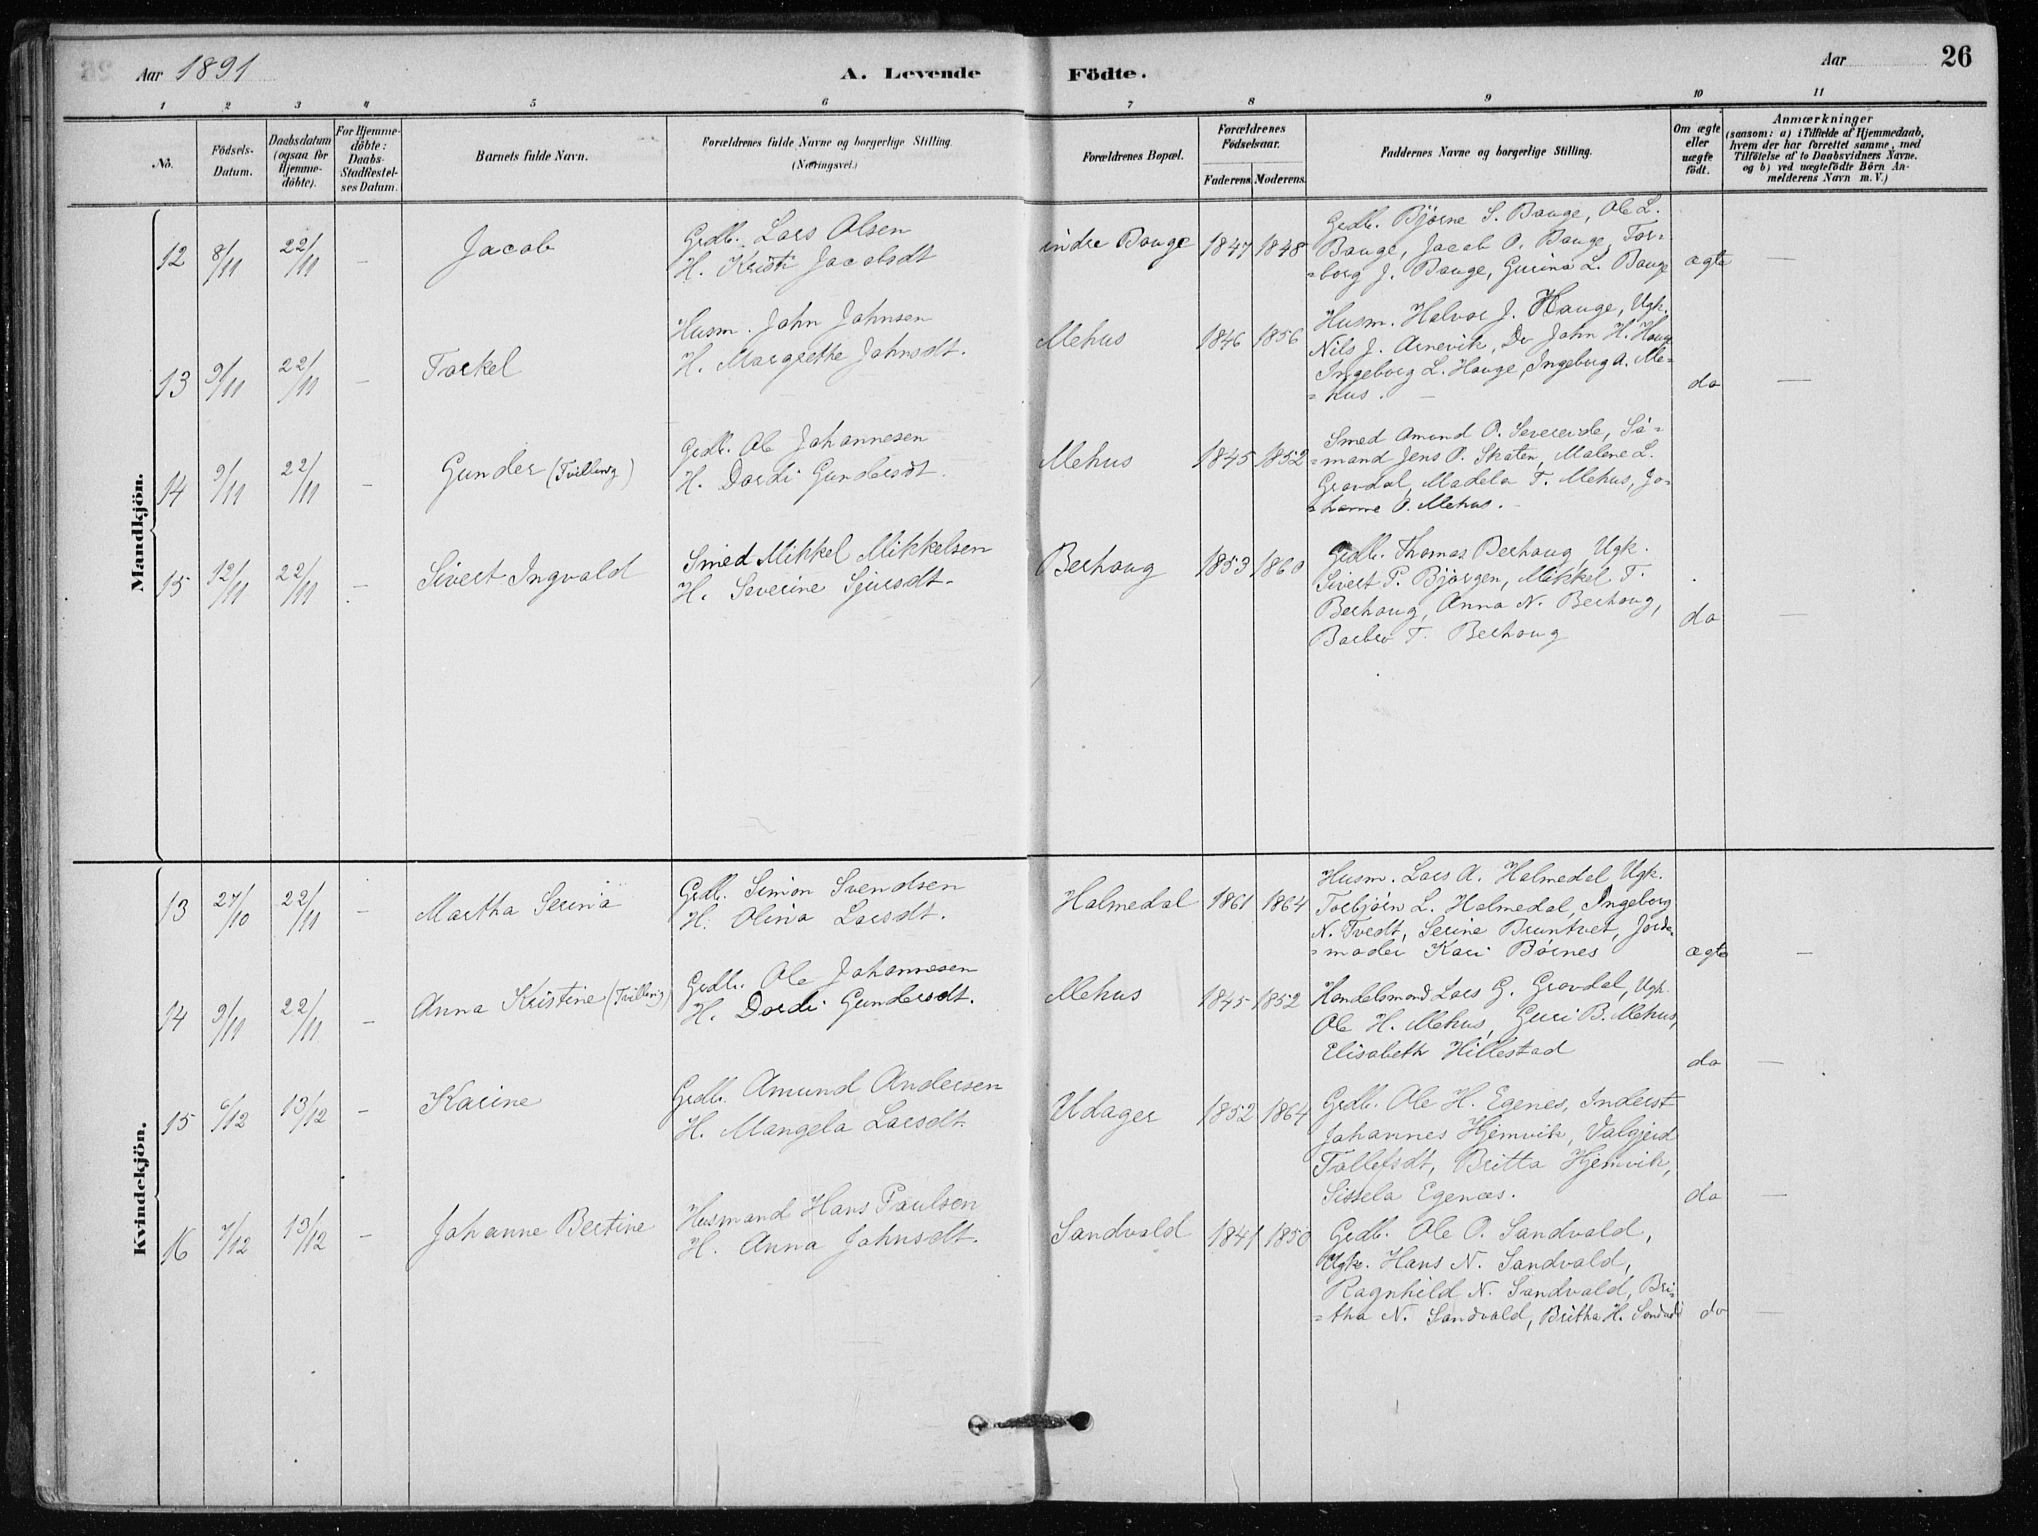 Aar 1891
A. Levende Födte.
Aar
26
1 2 3 4 5 6 7 8 9 10 11
No.
Födsels-Datum.
Daabsdatum (ogsaa for Hjemme-döbte).
For Hjemme-döbte: Daabs-Stadfæstel-ses Datum.
Barnets fulde Navn.
Forældrenes fulde Navne og borgerlige Stilling. (Næringsvei.)
Forældrenes Bopæl.
Forældrenes Födselsaar.
Faderens. Moderens.
Faddernes Navne og borgerlige Stilling.
Om ægte eller uægte födt.
Anmærkninger
(saasom: a) i Tilfælde af Hjemmedaab,
hvem der har forrettet samme, med
Tilföielse af to Daabsvidners Navne.
og b) ved uægtefödte Börn An-
melderens Navn m. V.)
Mandkjön.
12 8/11 22/11 - Jacob
Grdb. Lars Olsen
H. Kristi Jacobsdt
indre Bauge 1847 1848
Grdb. Bjørne S. Bauge, Ole L.
Bauge, Jacob O. Bauge, Tor-
=borg J. Bauge, Gurina L. Bauge
ægte -
13 9/11 22/11 - Torkel
Husm. John Johnsen
H. Margrethe Johnsdt.
Mehus 1846 1856
Husm. Halvor J. Hauge, Ugk.
Nils J. Arnevik, Do John H. Hauge
Ingeborg L. Hauge, Ingeborg A. Me-
=hus. -
do -
14 9/11 22/11 - Gunder (Tvilling)
Grdb. Ole Johannesen
H. Dordi Gundersdt.
Mehus 1845 1852
Smed Amund O. Severeide, Sö-
=mand Jens P. Skaten, Malene L.
Gravdal, Madela T. Mehus, Jo-
=hanne O. Mehus. -
15 12/11 22/11 - Sivert Ingvald
Smed Mikkel Mikkelsen
H. Severine Sjursdt.
Berhaug 1853 1860
Grdb. Thomas Berhaug, Ugk.
Sivert P. Bjørgen, Mikkel T.
Berhaug, Anna N. Berhaug,
Barbro T. Berhaug
do -
Kvindekjön.
13 27/10 22/11 - Martha Serina
Grdb. Simon Svendsen
H. Olina Larsdt.
Halmedal 1861 1864
Husm. Lars A. Halmedal Ugk.
Torbjørn L. Halmedal, Ingeborg
N. Tvedt, Serine Bruntvet, Jorde-
=moder Kari Børnes
ægte -
14 9/11 22/11 - Anna Kristine (Tvilling)
Grdb. Ole Johannesen
H. Dordi Gundersdt.
Mehus 1845 1852
Handelsmand Lars G. Gravdal, Ugk.
Ole H. Mehus, Guri B. Mehus,
Elisabeth Hillestad
do -
15 6/12 13/12 - Karine
Grdb. Amund Andersen
H. Mangela Larsdt.
Udager 1852 1864
Grdb. Ole H. Egenes, Inderst
Johannes Hjemvik, Valgjerd
Tollefsdt, Britta Hjemvik,
Sissela Egenæs.
do -
16 7/12 13/12 - Johanne Bertine
Husmand Hans Paulsen
H. Anna Johnsdt.
Sandvald 1841 1850
Grdb. Ole O. Sandvald,
Ugk. Hans N. Sandvald,
Ragnhild N. Sandvald, Bri-
=tha N. Sandvald, Britha H. Sandvald
do -